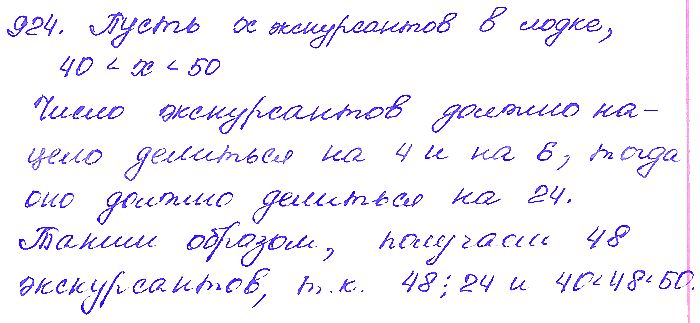 924. Пусть x экскурсантов в лодке,
40 < x < 50
Число экскурсантов должно на-
цело делиться на 4 и на 6, тогда
оно должно делиться на 24.
Таким образом, получаем 48
экскурсантов, т.к. 48⋮24 и 40<48<50.